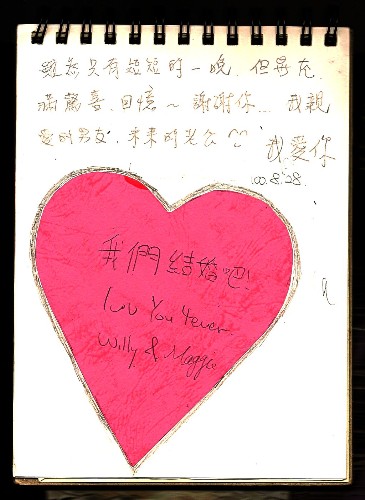 雖然只有短短的一晚, 但是充
滿驚喜、回憶~ 謝謝你... 我親
愛的男友, 未來的老公
我愛你
100.8.28.
我們結婚吧!
Luv You 4ever
Willy & Maggie